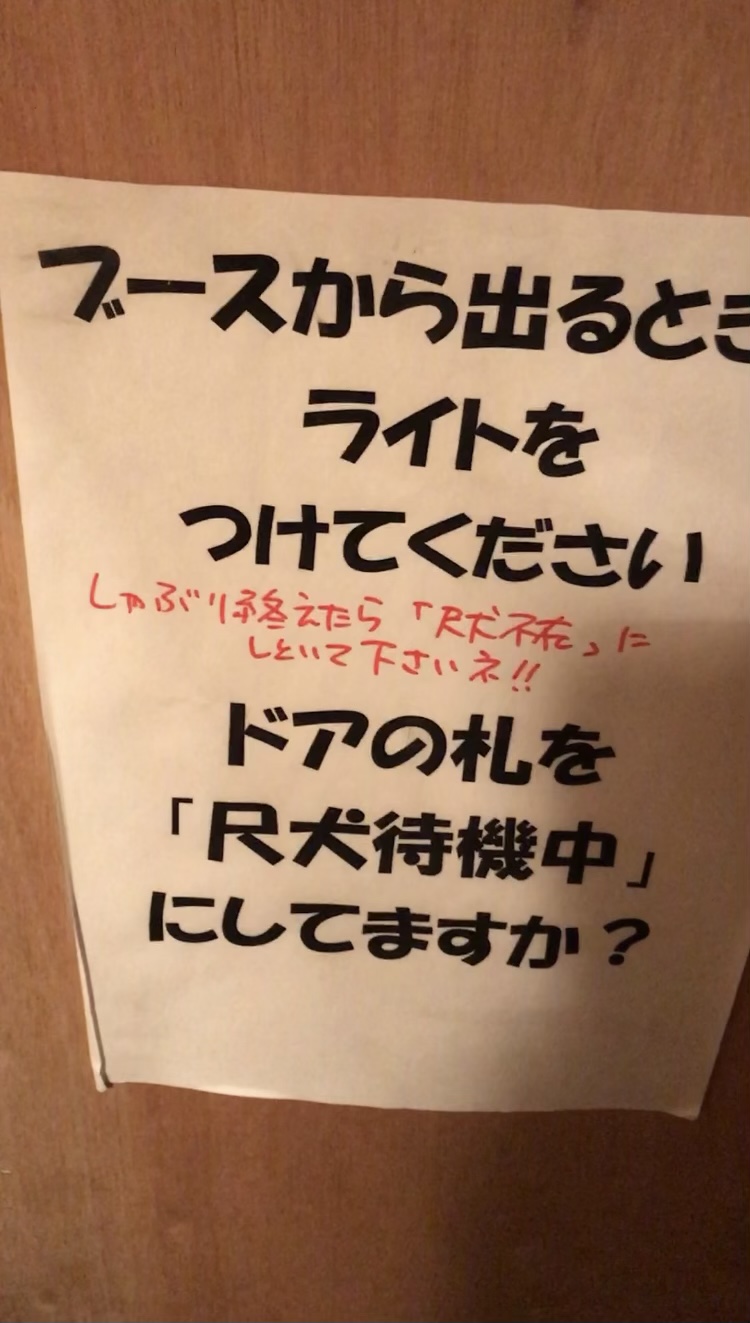 ブースから出るとき
ライトを
つけてください
しゃぶり終えたら「尺犬不在」に
しといて下さいネ!!
ドアの札を
「尺犬待機中」
にしてますか？